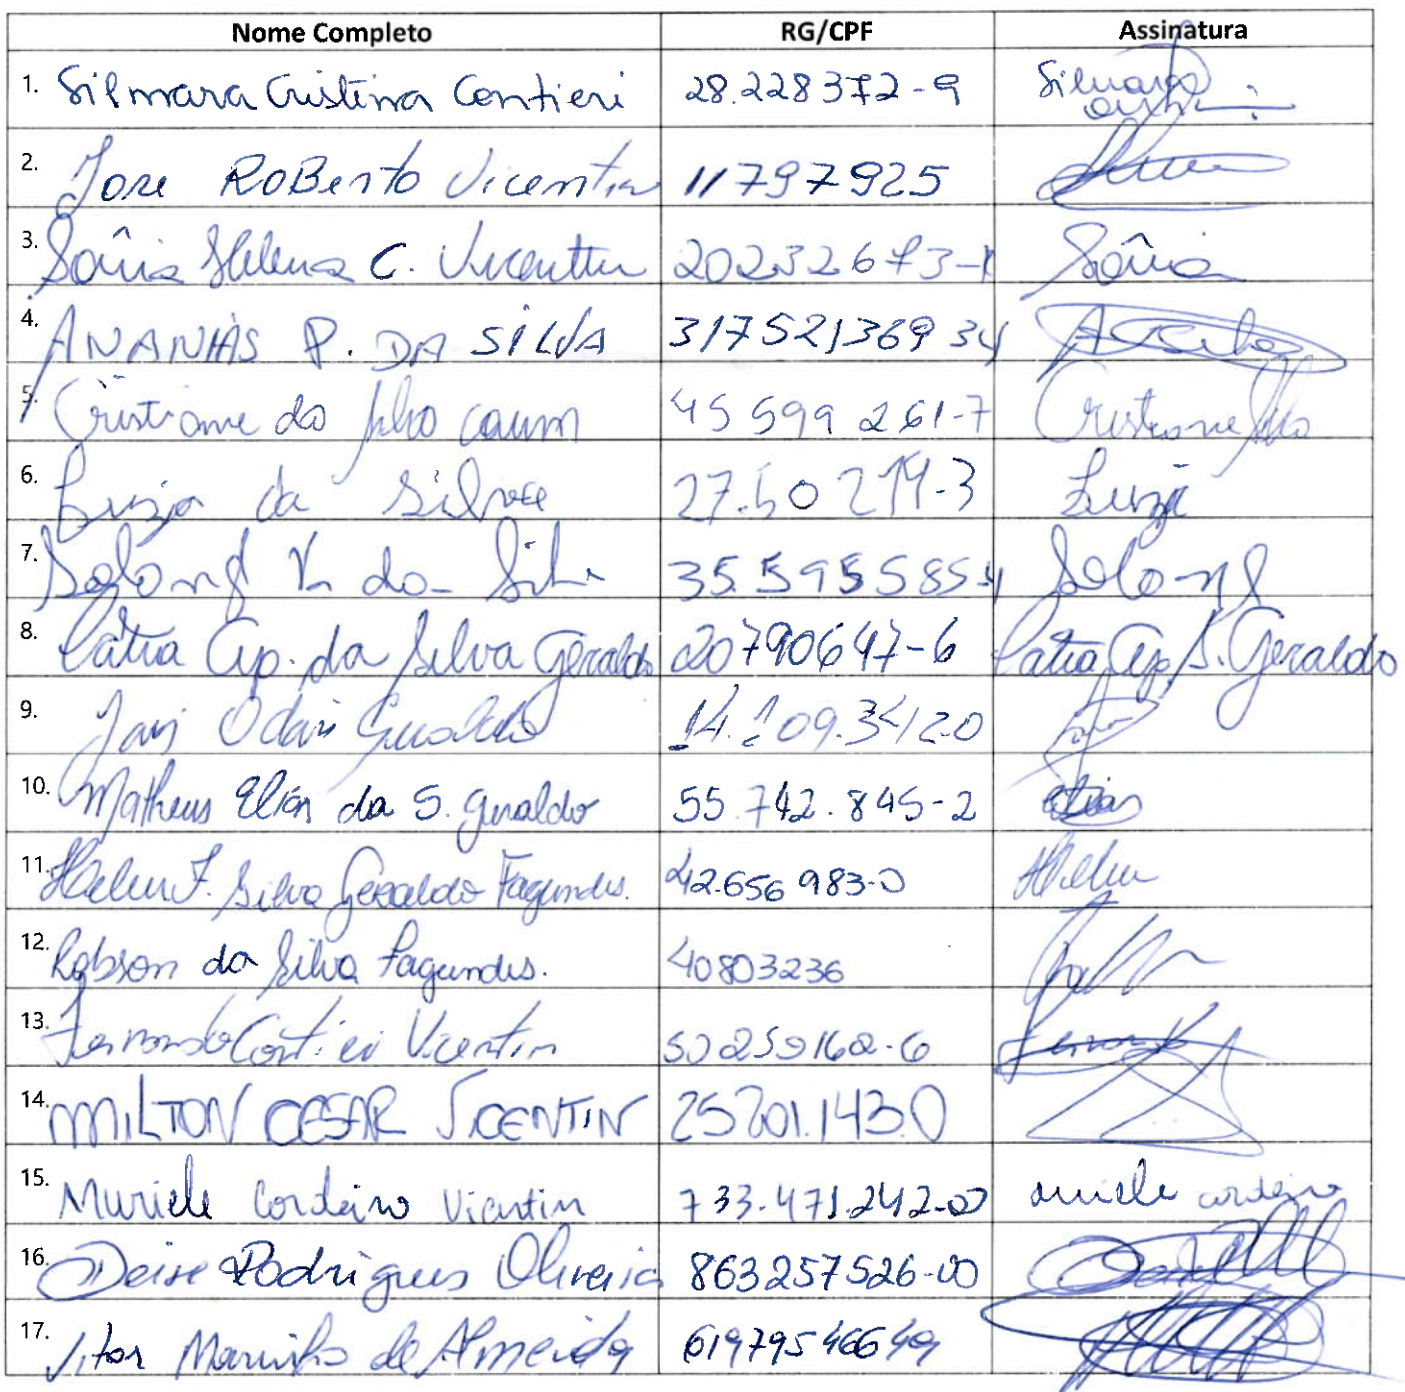 Nome Completo RG/CPF Assinatura
1. Silmara Cristina Contieri 28.228372-9 Silmara
2. Jose RoBerto Vicentin 11797925
3. Sônia Helena C. Vicentin 20232673-1 Sônia
4. ANANIAS P. DA SILVA 317521369 34 A Silva
5. Cristiane da Silva 45 599 261-7 Cristiane Silva
6. Luzia da Silva 27.50 219-3 Luzia
7. Solong V. da Silva 35.5955585-4 Solong
8. Catia Ap. da Silva Geraldo 20790647-6 Catia Ap. S. Geraldo
9. Jair Odair Geraldo 14.109.3412.0
10. Matheus Elias da S. Geraldo 55.742.845-2 Elias
11. Helen F. Silva Geraldo Fagundes. 42.656 983-0 Helen
12. Robson da Silva Fagundes. 40803236
13. Fernando Contieri Vicentin 50259162-6
14. MILTON CESAR VICENTIN 25201.143.0
15. Muriele Cordeiro Vicentin 733.471.242-00 muriele cordeiro
16. Deise Rodrigues Oliveira 863257526-00
17. Vitor Marinho de Almeida 61979546649